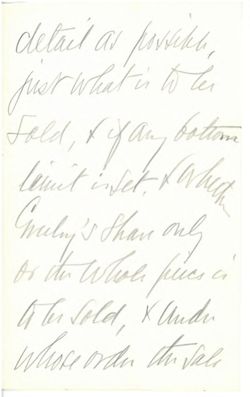 detail as possible,
just what is to be
sold, & if any bottom
limit is set. & whether
share only
or the whole piece is
to be sold, & under
whose order the sale